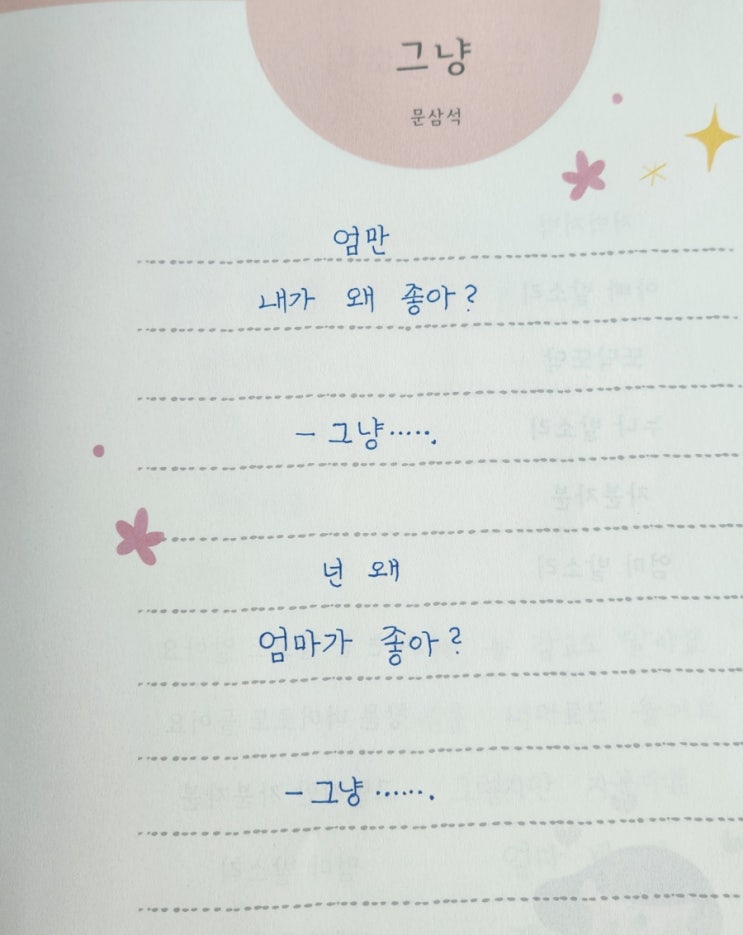 그냥
문삼석
엄만
내가 왜 좋아?
- 그냥…….
넌 왜
엄마가 좋아?
- 그냥…….